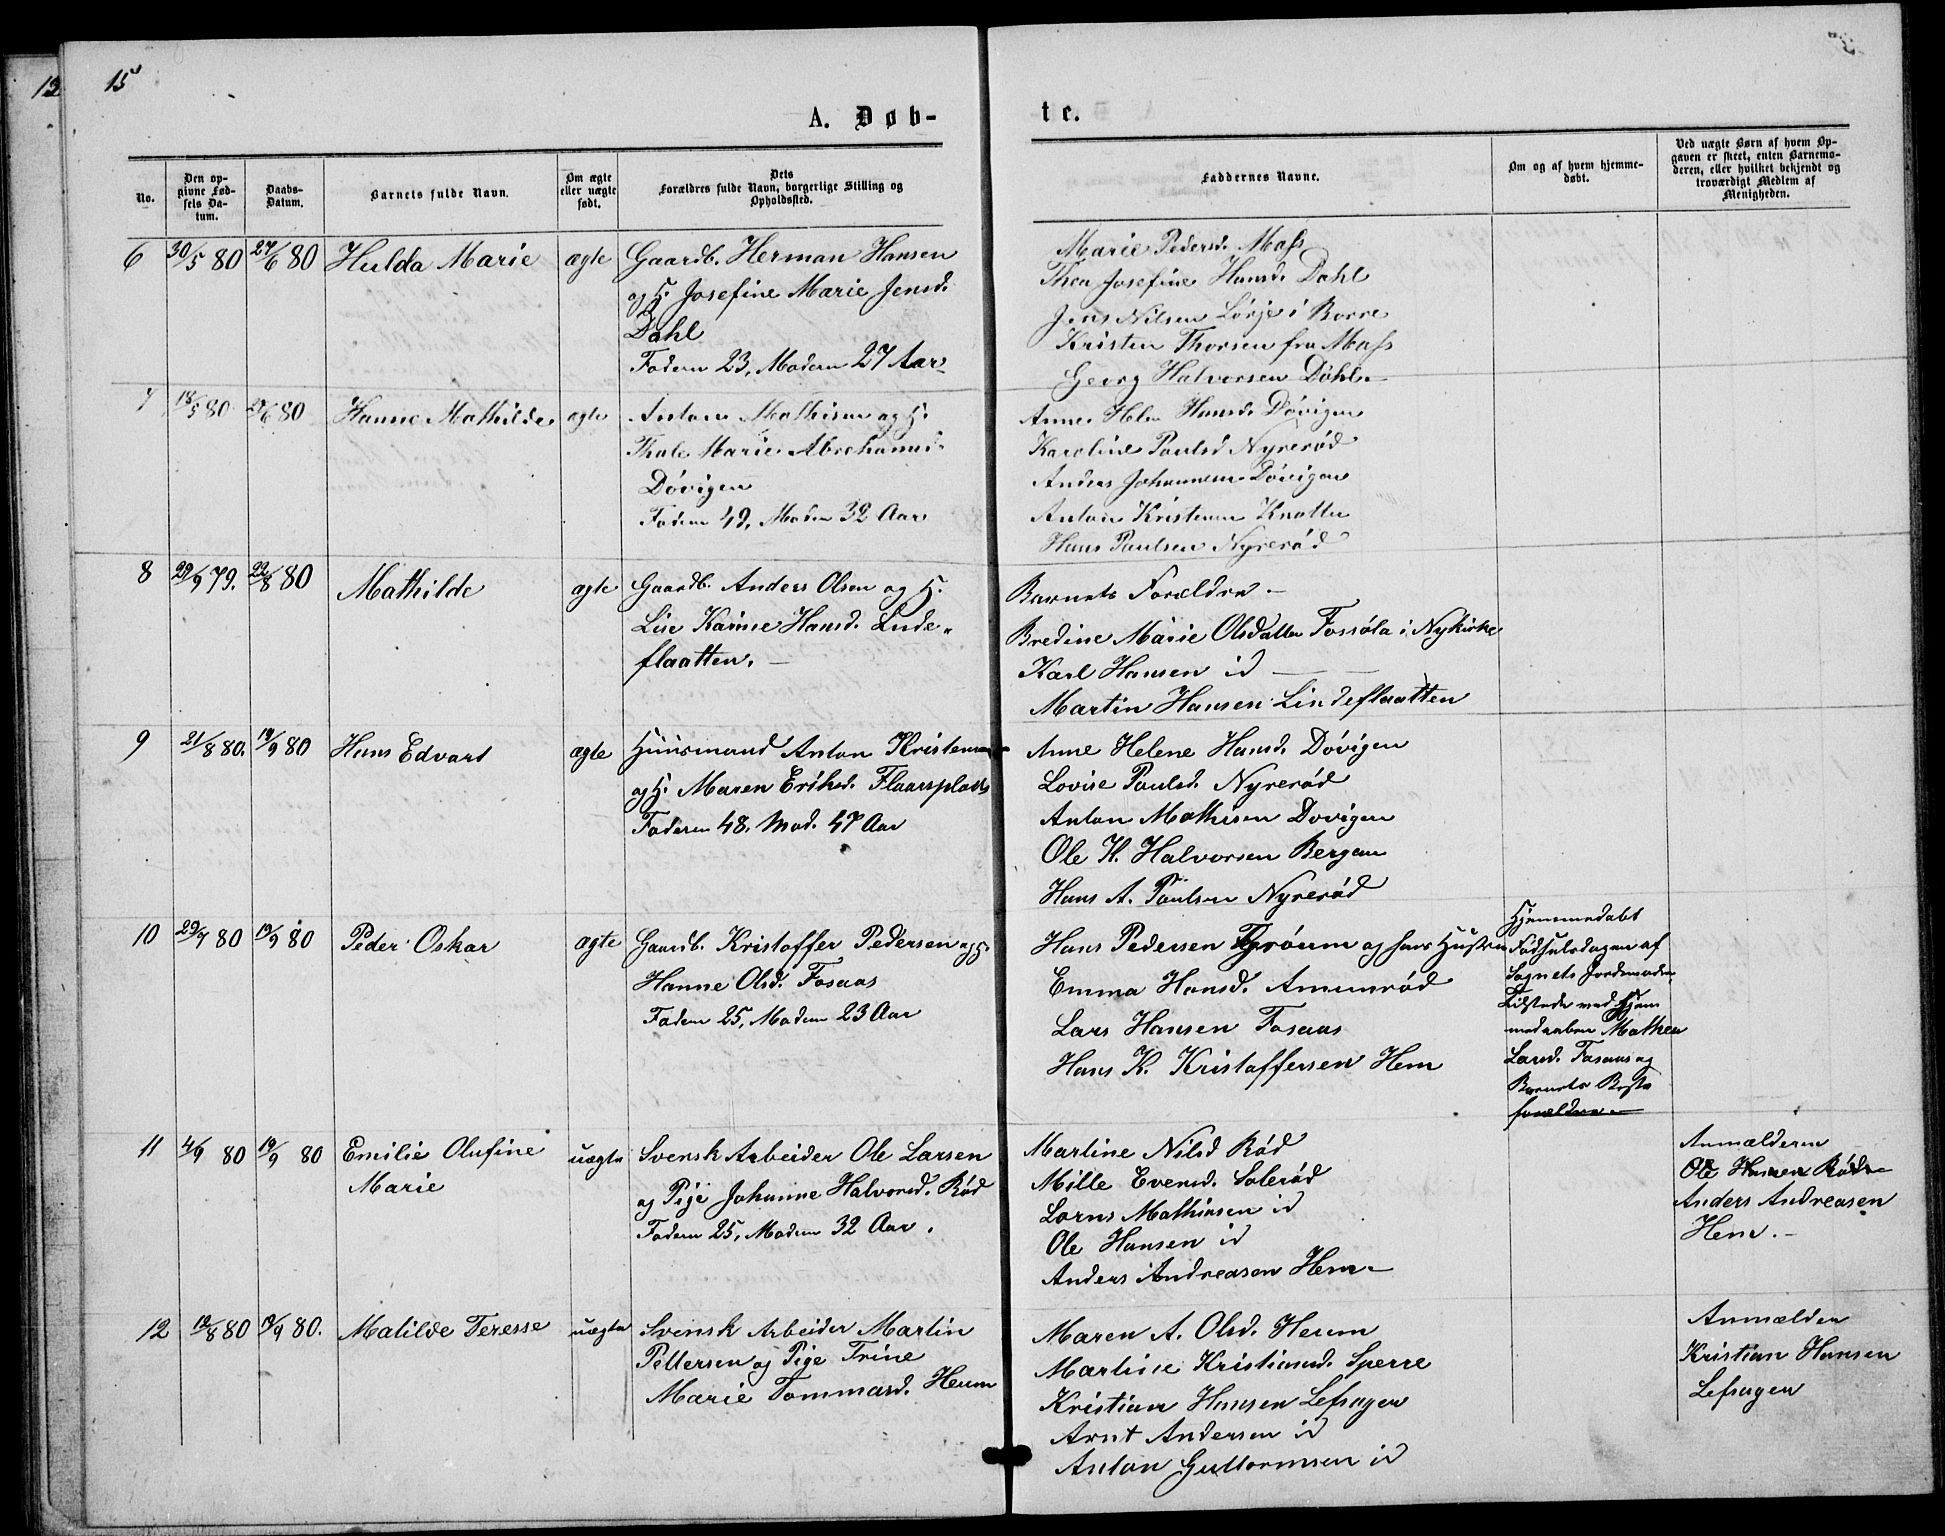 12
15
A. Døb-
te.
No.
Den op-
givne Fød-
sels Da-
tum.
Daabs-
Datum.
Barnets fulde Navn.
Om ægte
eller uægte
født.
Dets
Forældres fulde Navn, borgerlige Stilling og
Opholdssted.
Faddernes Navne.
Om og af hvem hjemme-
døbt.
Ved uægte Børn af hvem Op-
gaven er skeet, enten Barnemo-
deren, eller hvilket bekjendt og
troværdigt Medlem af
Menigheden.
6 30/5 80 27/6 80 Hulda Marie ægte Gaardb. Herman Hansen
og H. Josefine Marie Jensd.
Dahl
Faderen 23, Moderen 27 Aar
Marie Pedersd. Mass
Thea Josefine Hansd. Dahl
Jens Nilsen Lørje i Borre
Kristen Thorsen fra Mass
Georg Halvorsen Dahl.
7 18/5 80 27/6 80 Hanne Mathilde ægte Anton Mathisen og H.
Thale Marie Abrahamsd.
Døvigen
Faderen 49, Moderen 32 Aar
Anne Helene Hansd. Døvigen
Karoline Paulsd Nyrerød
Anders Johannesen Døvigen
Anton Kristensen Knatten
Hans Paulsen Nyrerød
8 29/9 79. 22/8 80 Mathilde ægte Gaardb. Anders Olsen og H.
Lise Karine Hansd. Linde-
flaatten.
Barnets Forældre
Bredine Marie Olsdatter Fossøla i Nykirke
Karl Hansen id
Martin Hansen Lindeflaatten
9 21/8 80. 19/9 80 Hans Edvart ægte Huusmand Anton Kristensen
og H. Maren Eriksd. Flaarsplads
Faderen 48, Mod. 47 Aar
Anne Helene Hansd. Døvigen
Lovise Paulsd. Nyrerød
Anton Mathisen Dovigen
Ole H. Halvorsen Bergan
Hans A. Paulsen Nyrerød
10 29/7 80 19/9 80 Peder Oskar ægte Gaardb. Kristoffer Pedersen og H.
Hanne Olsd. Fosaas
Faderen 25, Moderen 23 Aar
Hans Pedersen og hans Hustru
Emma Hansd. Amunrød
Lars Hansen Fosaas
Hans K. Kristoffersen Hem
Hjemmedøbt
Fødselsdagen af
Sognets Jordemoder
Tilstede ved Hjem
medaaben Mathea
Larsd. Fosaas og
Barnets Beste
forældre.
11 4/9 80 19/9 80 Emilie Olufine
Marie
uægte Svensk Arbeider Ole Larsen
og Pige Johanne Halvorsd. Rød
Faderen 25, Moderen 32 Aar.
Martine Nilsd Rød
Mille Evensd. Solerød
Lorns Mathisen id
Ole Hansen id
Anders Andreasen Hem
Anmelderen
Ole Hansen Rød
Anders Andreasen
Hem.
12 12/8 80 19/9 80. Matilde Teresse uægte Svensk Arbeider Martin
Pettersen og Pige Trine
Marie Tommasd. Herum
Maren A. Olsd. Herum
Martine Kristiansd. Sperre
Kristian Hansen Lefsagen
Arnt Andersen id
Anton Guttormsen id
Anmælderen
Kristian Hansen
Lefsagen